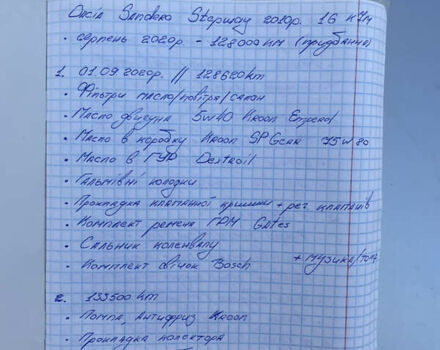 Dacia Sandero Stepway 2010р. 1.6
• серпень 2020р. - 128000км (придбання)
1. 01.09.2020р. // 128620km
• Фільтри масло/повітря/салон
• Масло двигуна 5w40 Kroon
• Масло в коробку Kroon SPGear 75w80
• Масло в ГУР Dextroil
• Гальмівні колодки
• Прокладка клапанної кришки + рег клапанів
• Комплект ременя ГРМ Gates
• Сальник коленвалу
• Комплект свічок Bosch + музика
2. 133500 km
• Помпа, Антифриз Kroon
• Прокладка колектора